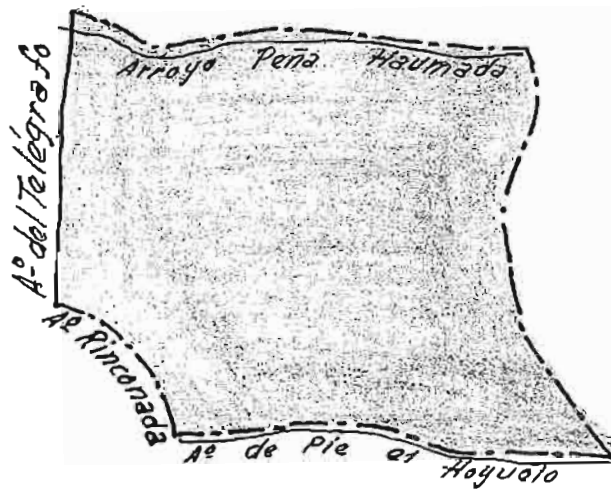 Arroyo Peña Haumada
Aº del Telégrafo
Aº Rinconada
Aº de Pie el Hoyuelo